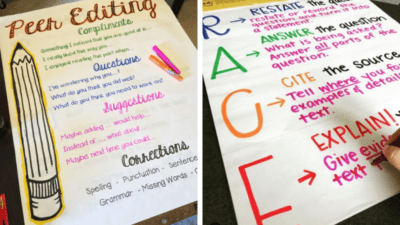 Peer Editing
Compliments
Something I noticed that you are good at is...
I really liked the way you...
I enjoyed reading the part when...
Questions
I'm wondering why you...?
What do you think you did well?
What do you think you need to work on?
Suggestions
Maybe adding ... would help...
Instead of ... what about...
Maybe next time you could...
Corrections
Spelling - Punctuation - Sentence
Grammar - Missing Words -
R RESTATE the question
restate or reword the
question and turn it into
a statement
A ANSWER the question
→ What is being asked?
Answer all parts of the
question.
C CITE the source
→ Tell where you fo
examples & detail
text.
E EXPLAIN!
→ Give evid
text